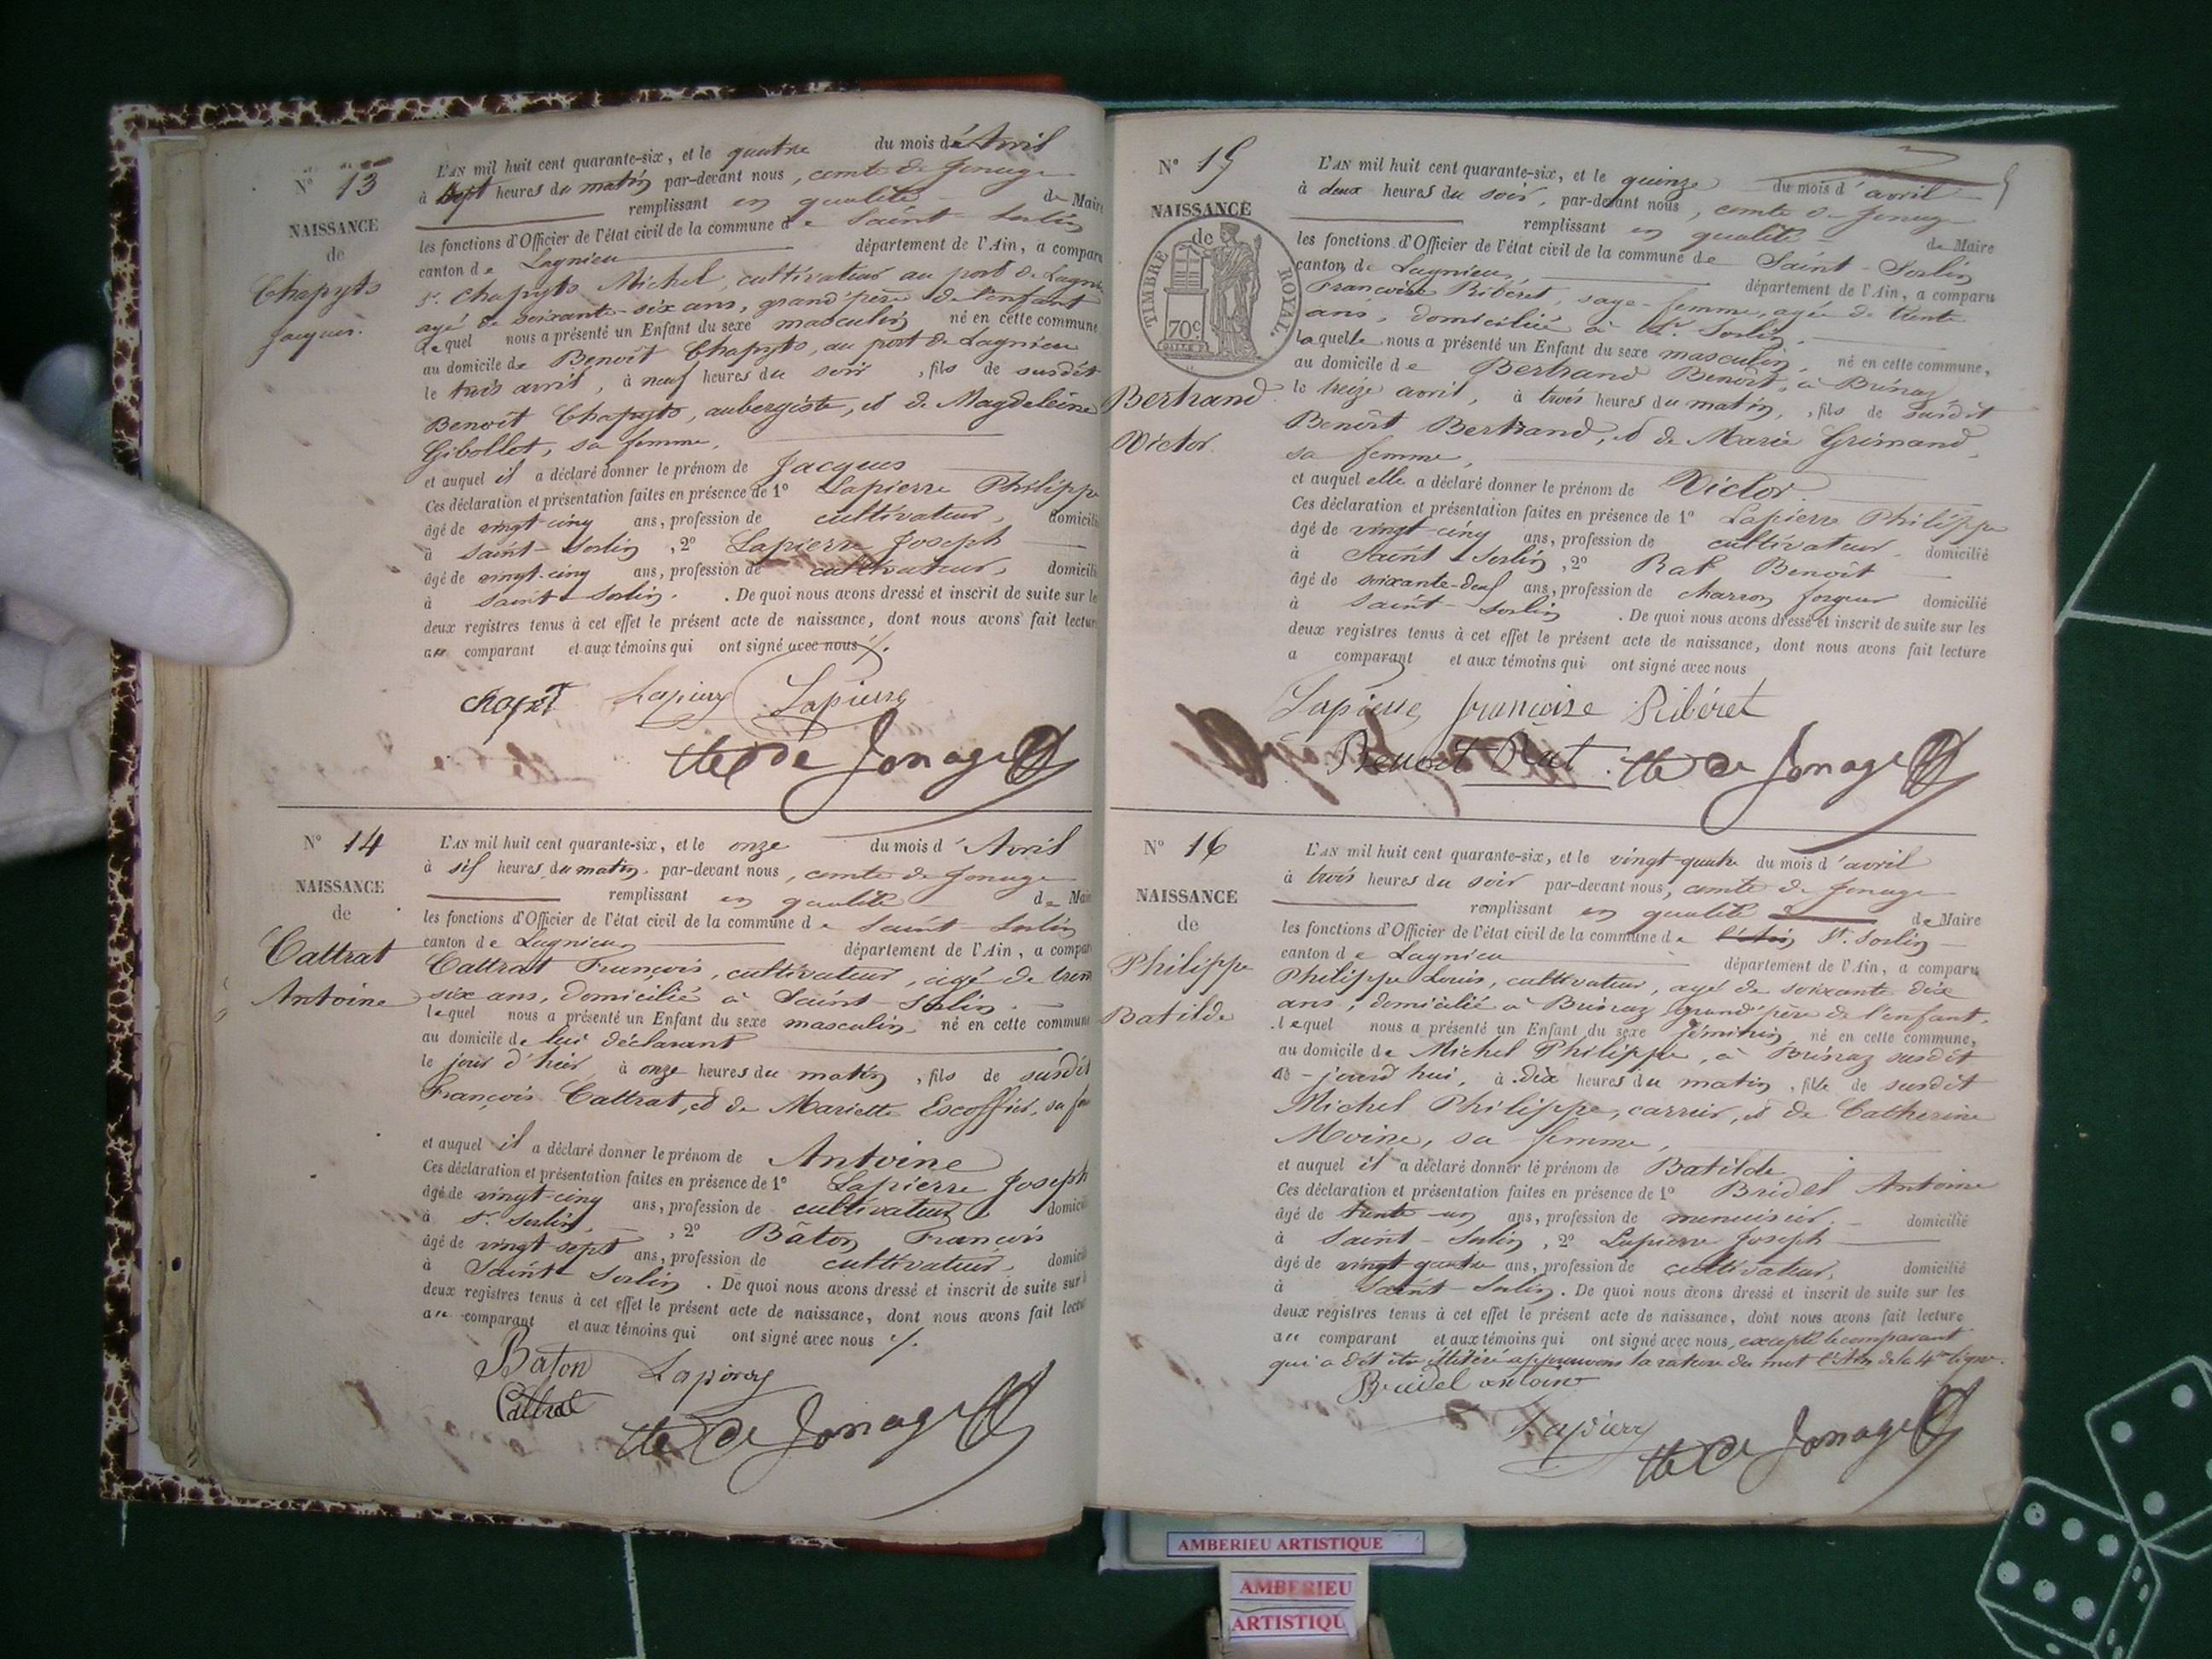 N° 13
NAISSANCE
de
Chapyts
Jacques.
L'AN mil huit cent quarante-six, et le quatre du mois d'Avril
à sept heures du matin par-devant nous, comte de Jonage
remplissant en qualité de Maire
les fonctions d'Officier de l'état civil de la commune de Saint-Sorlin
canton de Lagnieu département de l'Ain, a comparu
Sr. Chapyts Michel, cultivateur au port de Lagnieu
agé de soixante-six ans, grand'père de l'enfant
lequel nous a présenté un Enfant du sexe masculin né en cette commune
au domicile de Benoît Chapyts, au port de Lagnieu
le trois avril, à neuf heures du soir, fils de susdit
Benoît Chapyts, aubergiste, et de Magdeleine
Gibollet, sa femme,
et auquel il a déclaré donner le prénom de Jacques
Ces déclaration et présentation faites en présence de 1° Lapierre Philippe
âgé de vingt-cinq ans, profession de cultivateur, domicilié
à Saint-Sorlin, 2° Lapierre Joseph
âgé de vingt-cinq ans, profession de cultivateur, domicilié
à Saint-Sorlin. De quoi nous avons dressé et inscrit de suite sur les
deux registres tenus à cet effet le présent acte de naissance, dont nous avons fait lecture
au comparant et aux témoins qui ont signé avec nous ./.
chapit Lapierre Lapierre
Cte de Jonage
N° 14
NAISSANCE
de
Cattrat
Antoine
L'AN mil huit cent quarante-six, et le onze du mois d'Avril
à six heures du matin par-devant nous, comte de Jonage
remplissant en qualité de Maire
les fonctions d'Officier de l'état civil de la commune de Saint-Sorlin
canton de Lagnieu département de l'Ain, a comparu
Cattrat François, cultivateur, agé de trente
six ans, domicilié à Saint-Sorlin.
lequel nous a présenté un Enfant du sexe masculin, né en cette commune
au domicile de lui déclarant
le jour d'hier, à onze heures du matin, fils de susdit
François Cattrat, et de Mariette Escoffier, sa fem
et auquel il a déclaré donner le prénom de Antoine
Ces déclaration et présentation faites en présence de 1° Lapierre Joseph
âgé de vingt-cinq ans, profession de cultivateur domicilié
à St. Sorlin, 2° Bâton François
âgé de vingt sept ans, profession de cultivateur, domicilié
à Saint-Sorlin. De quoi nous avons dressé et inscrit de suite sur les
deux registres tenus à cet effet le présent acte de naissance, dont nous avons fait lecture
au comparant et aux témoins qui ont signé avec nous ./.
Baton Lapierre
Cattrat
Cte de Jonage
N° 15
NAISSANCE
de
TIMBRE ROYAL.
70c
Bertrand
Victor.
L'AN mil huit cent quarante-six, et le quinze du mois d'avril
à deux heures du soir, par-devant nous, comte de Jonage
remplissant en qualité de Maire
les fonctions d'Officier de l'état civil de la commune de Saint-Sorlin
canton de Lagnieu, département de l'Ain, a comparu
Françoise Ribéret, sage-femme, agée de trente
ans, domiciliée à St. Sorlin,
laquelle nous a présenté un Enfant du sexe masculin, né en cette commune,
au domicile de Bertrand Benoît, à Brénaz,
le treize avril, à trois heures du matin, fils de susdit
Benoît Bertrand, et de Marie Grimand,
sa femme,
et auquel elle a déclaré donner le prénom de Victor.
Ces déclaration et présentation faites en présence de 1° Lapierre Philippe
âgé de vingt-cinq ans, profession de cultivateur domicilié
à Saint-Sorlin, 2° Rat Benoît
âgé de soixante-deux ans, profession de charron forgeur domicilié
à Saint-Sorlin. De quoi nous avons dressé et inscrit de suite sur les
deux registres tenus à cet effet le présent acte de naissance, dont nous avons fait lecture
a comparant et aux témoins qui ont signé avec nous
Lapierre françoise Ribéret
Benoit Rat. Cte de Jonage
N° 16
NAISSANCE
de
Philippe
Batilde
L'AN mil huit cent quarante-six, et le vingt-quatre du mois d'avril
à trois heures du soir par-devant nous, comte de Jonage
remplissant en qualité de Maire
les fonctions d'Officier de l'état civil de la commune de l'Ain St. Sorlin
canton de Lagnieu département de l'Ain, a comparu
Philippe Louis, cultivateur, agé de soixante dix
ans, domicilié à Brénaz grand'père de l'enfant,
lequel nous a présenté un Enfant du sexe féminin, né en cette commune,
au domicile de Michel Philippe, à Brénaz susdit
au-jourd'hui, à dix heures du matin, fille de susdit
Michel Philippe, carrier, et de Catherine
Moine, sa femme,
et auquel il a déclaré donner le prénom de Batilde
Ces déclaration et présentation faites en présence de 1° Bridel Antoine
âgé de trente-un ans, profession de menuisier. domicilié
à Saint-Sorlin, 2° Lapierre Joseph
âgé de vingt quatre ans, profession de cultivateur, domicilié
à Saint-Sorlin. De quoi nous avons dressé et inscrit de suite sur les
deux registres tenus à cet effet le présent acte de naissance, dont nous avons fait lecture
au comparant et aux témoins qui ont signé avec nous, excepté le comparant
qui a dit être illitéré approuvons la rature du mot l'Ain de la 4me ligne.
Bridel antoine
Lapierre
Cte de Jonage
AMBERIEU ARTISTIQUE
AMBERIEU
ARTISTIQU